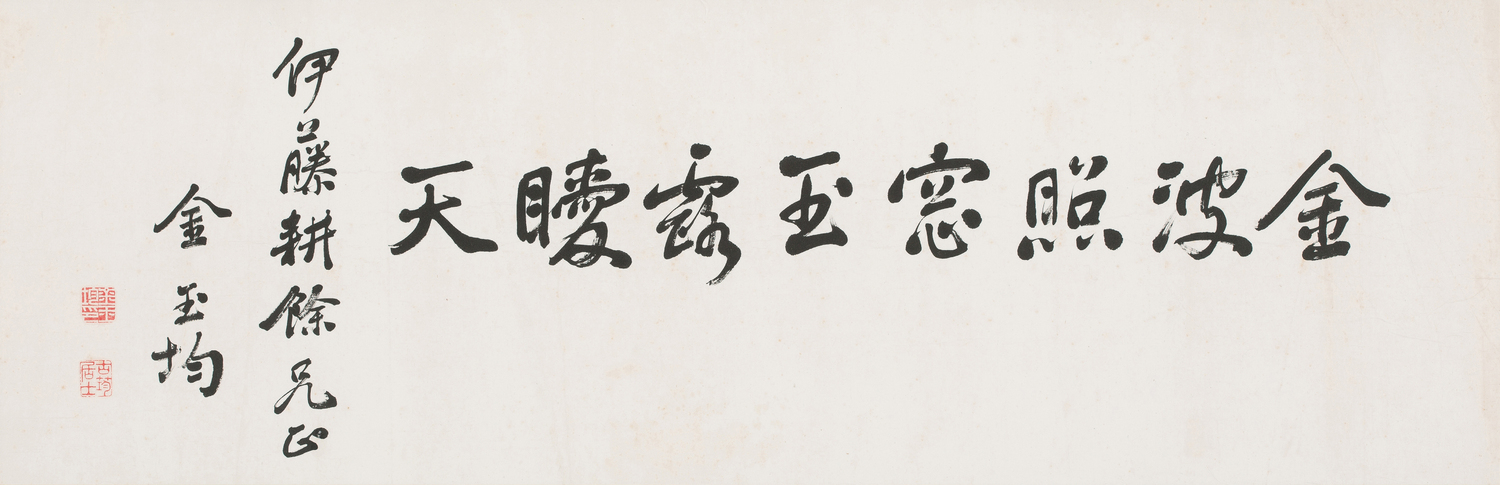 金波照窓玉露天
伊藤耕餘兄正
金玉均
古筠居士